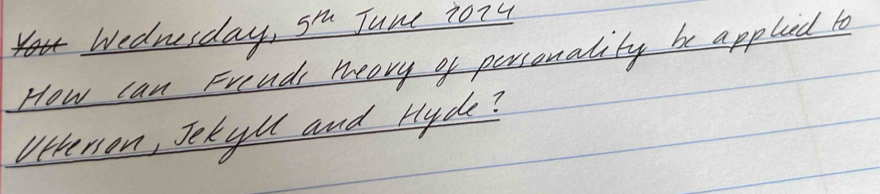 You Wednesday, 5th June 2024
How can Freuds theory of personality be applied to
Utterson, Jekyll and Hyde?